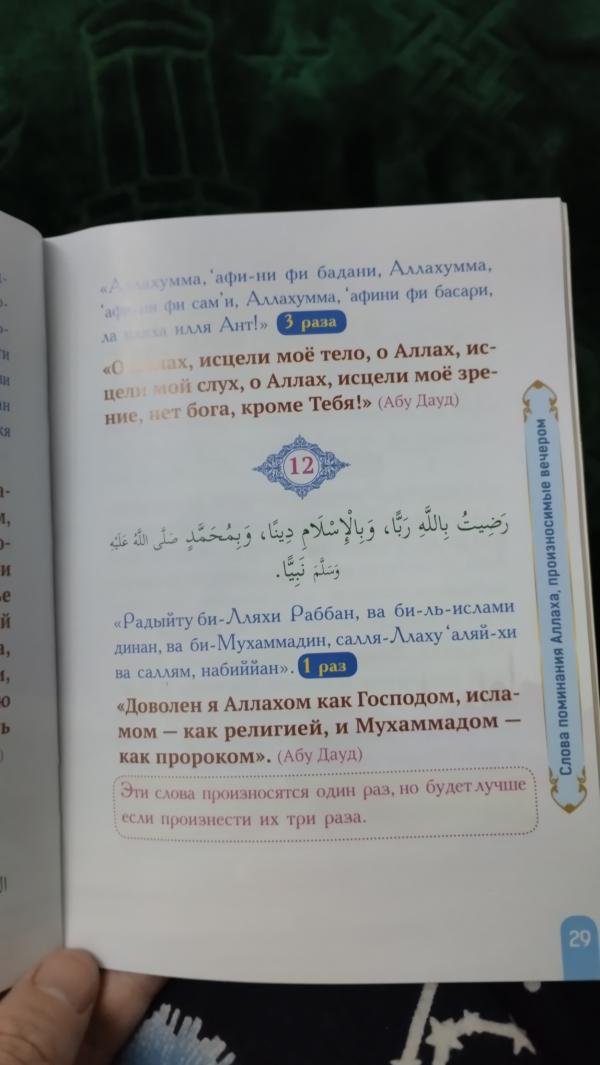 «Аллахумма, ‘афи-ни фи бадани, Аллахумма,
‘афи-ни фи сам’и, Аллахумма, ‘афини фи басари,
ла иляха илля Ант!» 3 раза
«О Аллах, исцели моё тело, о Аллах, ис-
цели мой слух, о Аллах, исцели моё зре-
ние, нет бога, кроме Тебя!» (Абу Дауд)
12
رَضِيتُ بِاللَّهِ رَبًّا، وَبِالْإِسْلَامِ دِينًا، وَبِمُحَمَّدٍ صَلَّى اللَّهُ عَلَيْهِ
وَسَلَّمَ نَبِيًّا.
«Радыйту би-Лляхи Раббан, ва би-ль-ислами
динан, ва би-Мухаммадин, салля-Ллаху ‘аляй-хи
ва саллям, набиййан». 1 раз
«Доволен я Аллахом как Господом, исла-
мом — как религией, и Мухаммадом —
как пророком». (Абу Дауд)
Эти слова произносятся один раз, но будет лучше
если произнести их три раза.
Слова поминания Аллаха, произносимые вечером
29